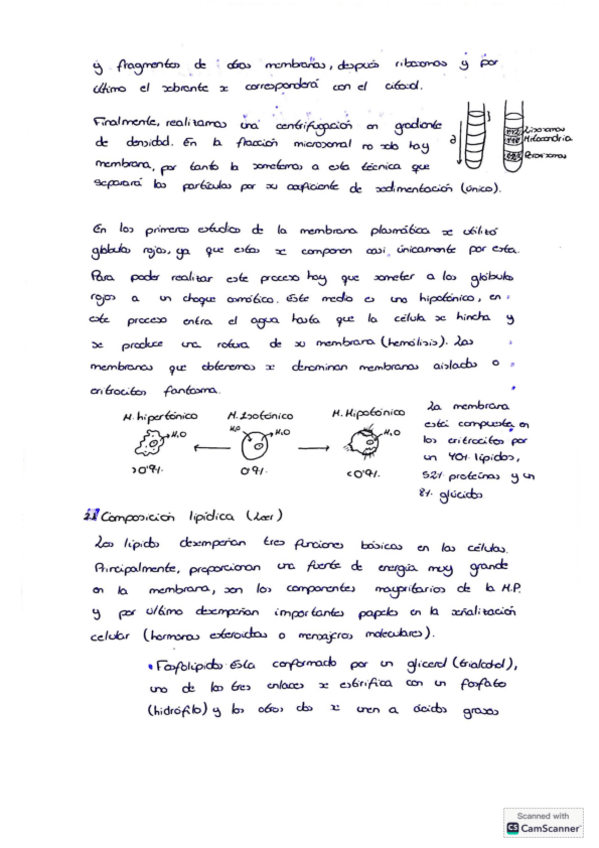 y fragmentos de otras membranas, después ribosomas y por
último el sobrante se corresponderá con el citosol.
Finalmente, realizamos una centrifugación en gradiente
de densidad. En la fracción microsomal no solo hay
membrana, por tanto la sometemos a esta técnica que
separará las partículas por su coeficiente de sedimentación (único).
Lisosomas
Mitocondria
Peroxisomas
En los primeros estudios de la membrana plasmática se utilizó
glóbulos rojos, ya que estos se componen casi únicamente por esta.
Para poder realizar este proceso hay que someter a los glóbulos
rojos a un choque osmótico. Este medio es uno hipotónico, en
este proceso entra el agua hasta que la célula se hincha y
se produce una rotura de su membrana (hemólisis). Las
membranas que obtenemos se denominan membranas aisladas o
eritrocitos fantasma.
M. hipertónico M. Isotónico M. Hipotónico
H₂O H₂O H₂O H₂O
>0'9%. 0'9%. <0'9%.
La membrana
está compuesta en
los eritrocitos por
un 40% lípidos,
52% proteínas y un
8% glúcidos
2.1 Composición lipídica (Leer)
Los lípidos desempeñan tres funciones básicas en las células.
Principalmente, proporcionan una fuente de energía muy grande
en la membrana, son los componentes mayoritarios de la M.P.
y por último desempeñan importantes papeles en la señalización
celular (hormonas esteroideas o mensajeros moleculares).
• Fosfolípidos Esta conformado por un glicerol (trialcohol),
uno de los tres enlaces se esterifica con un fosfato
(hidrófilo) y los otros dos se unen a ácidos grasos
Scanned with
CS CamScanner